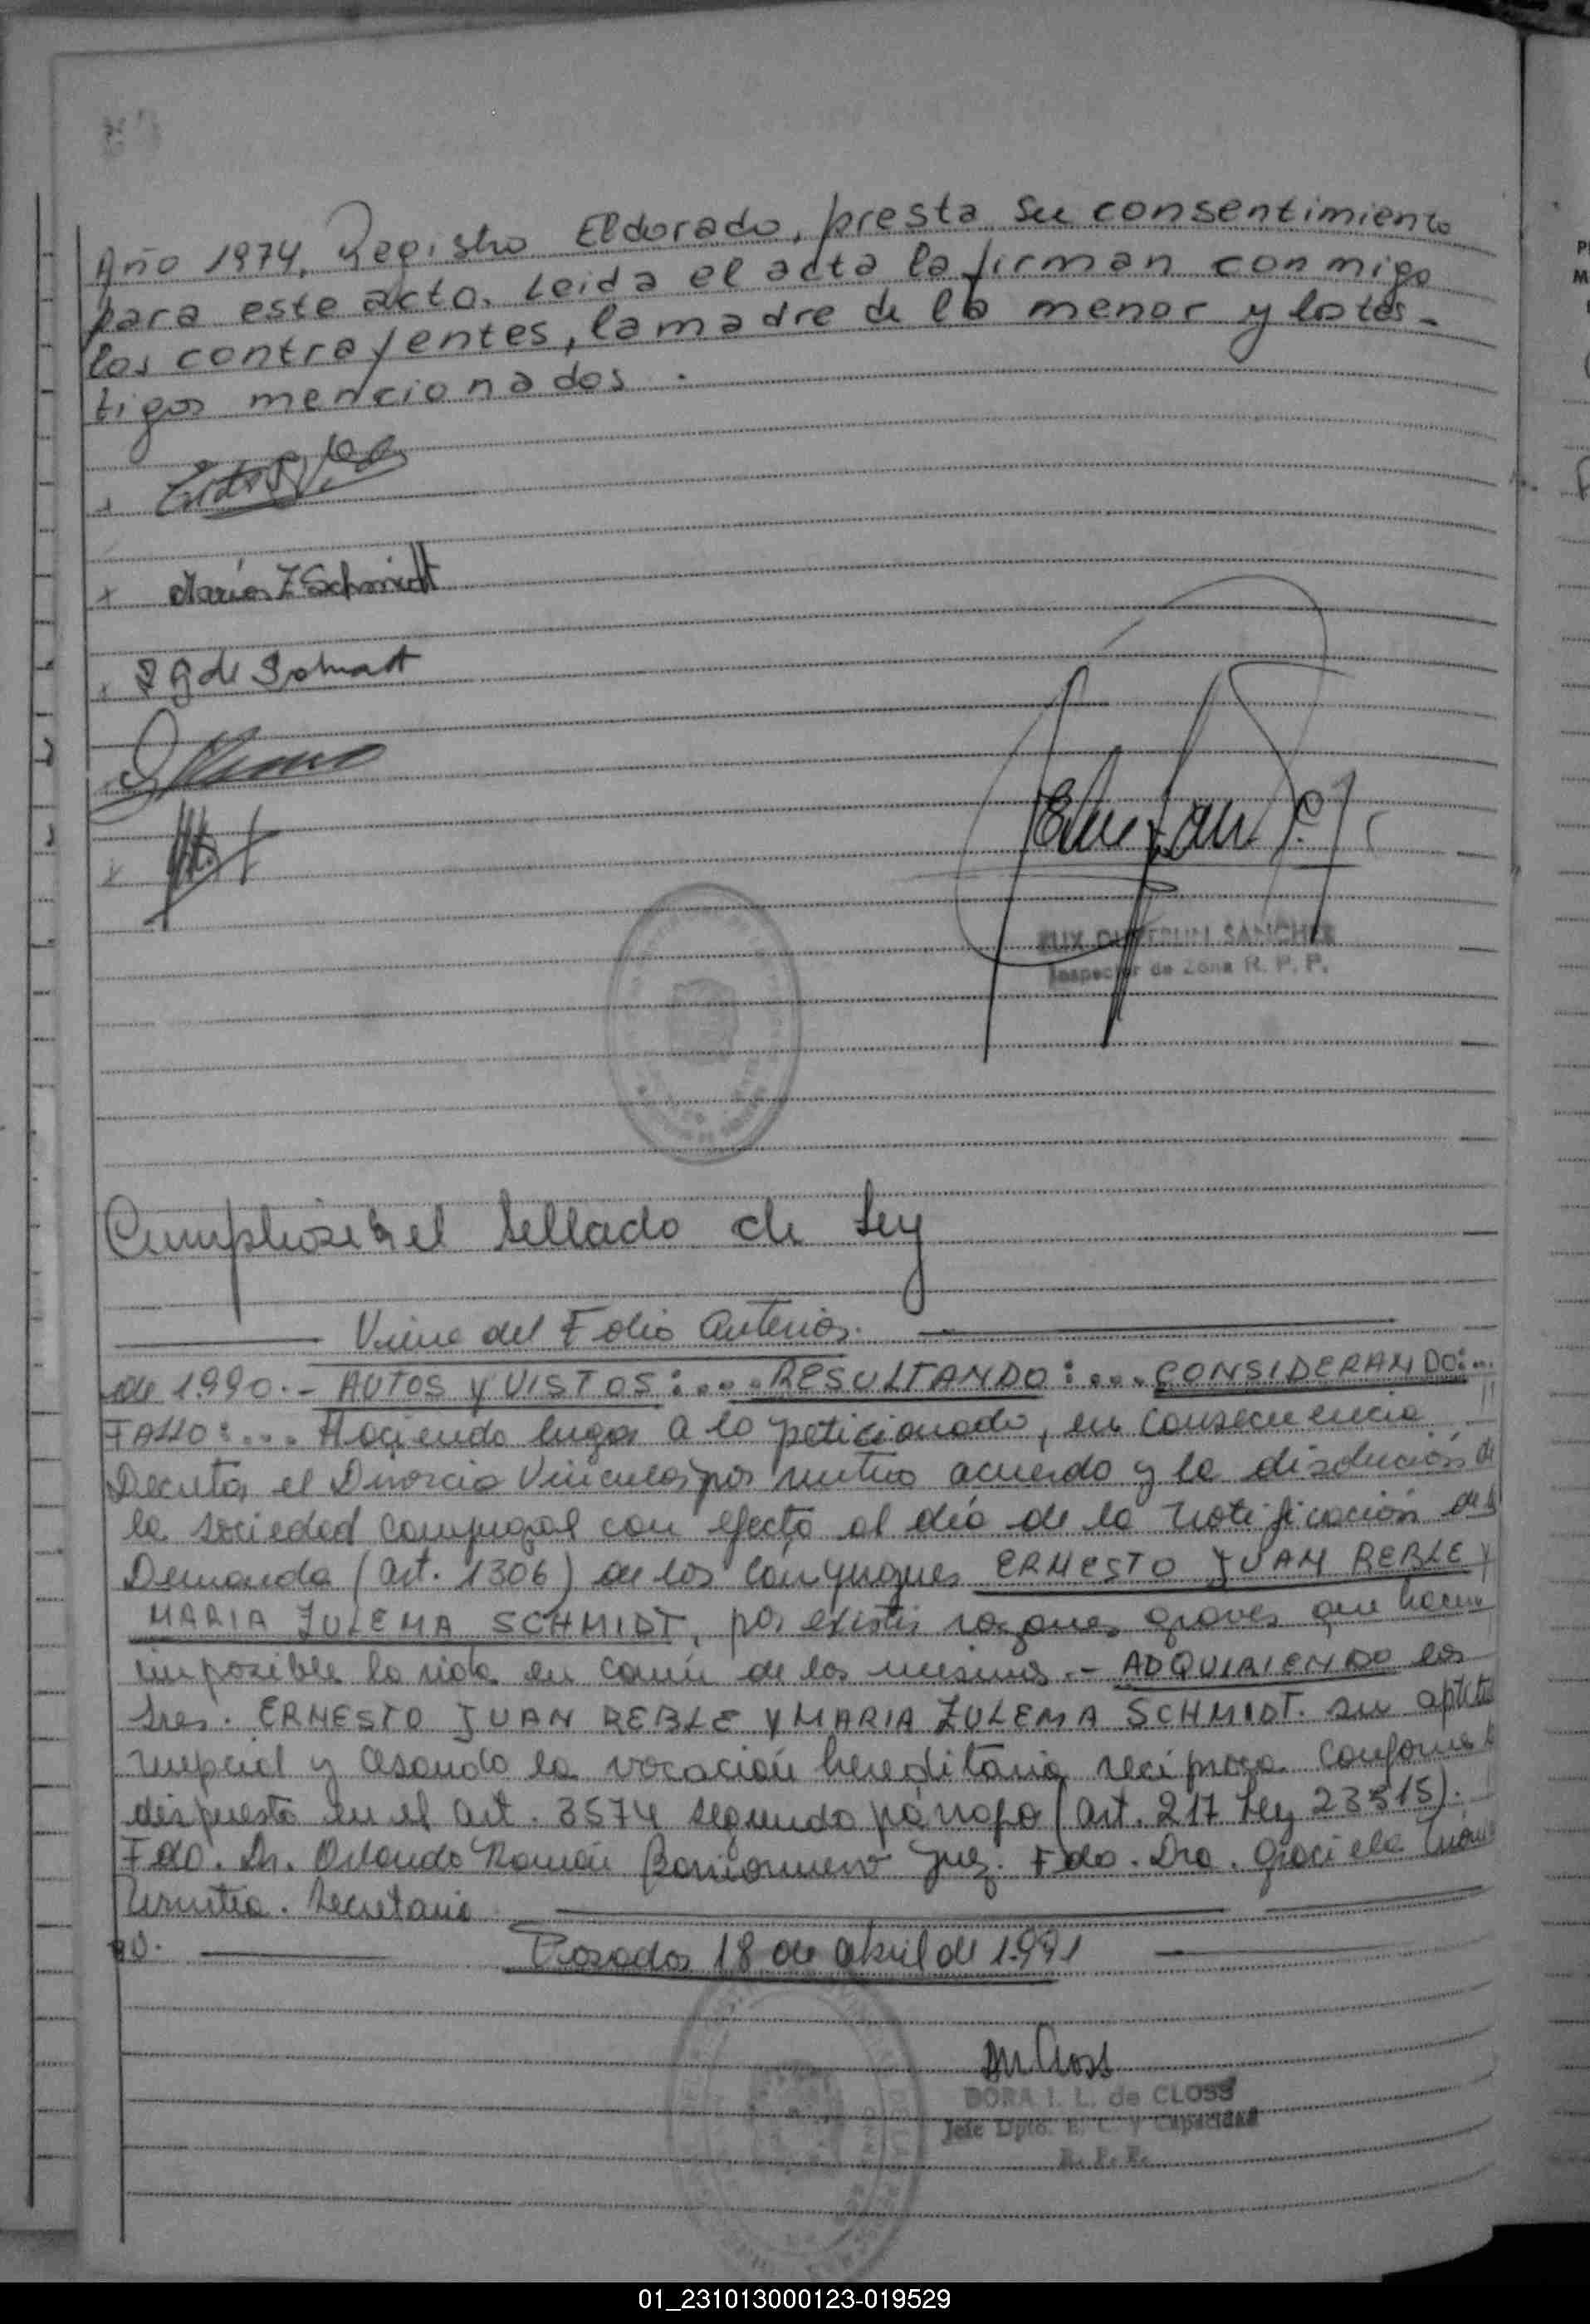 Año 1974, Registro Eldorado, presta su consentimiento
para este acto. Leida el acta la firman conmigo
los contrayentes, la madre de la menor y los tes-
tigos mencionados.
Maria Z Schmidt
Cumpliose el sellado de Ley
Viene del Folio Anterior.
de 1.990.- AUTOS Y VISTOS:.... RESULTANDO:.... CONSIDERANDO:...
FALLO:.... Haciendo lugar a lo peticionado, en consecuencia
Decretar el Divorcio Vincular por mutuo acuerdo y la disolución de
la sociedad conyugal con efecto al día de la notificación de la
Demanda (art. 1306) de los cónyuges ERNESTO JUAN REBLE Y
MARIA ZULEMA SCHMIDT, por existir razones graves que hacen
imposible la vida en común de los mismos.- ADQUIRIENDO los
Sres. ERNESTO JUAN REBLE Y MARIA ZULEMA SCHMIDT. su aptitud
nupcial y cesando la vocación hereditaria recíproca conforme lo
dispuesto en el art. 3574 segundo párrafo (art. 217 Ley 23515).
Fdo. Dr. Orlando Ramón Juez. Fdo. Dra. Graciela
Secretaria
Posadas 18 de abril de 1.991
SANCHEZ
Inspector de Zona R. P. P.
DORA I. L. de CLOSS
Jefe Dpto. E. C. y Capacidad
R. P. P.
01_231013000123-019529